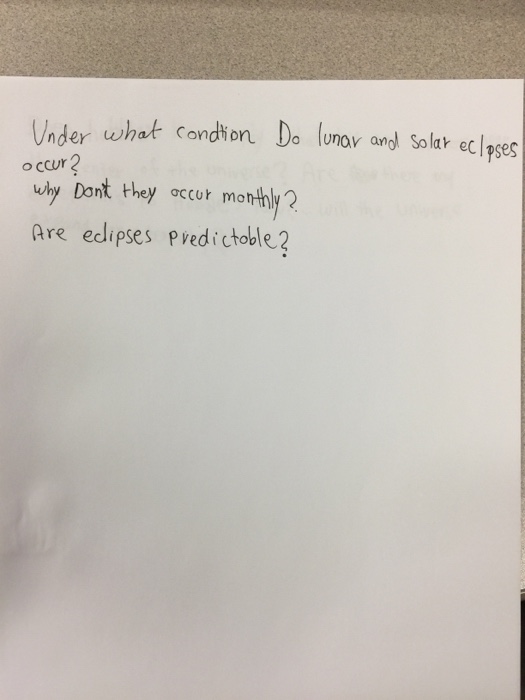 Under what condtion Do lunar and solar eclpses
occur?
why Dont they occur monthly?
Are eclipses predictable?